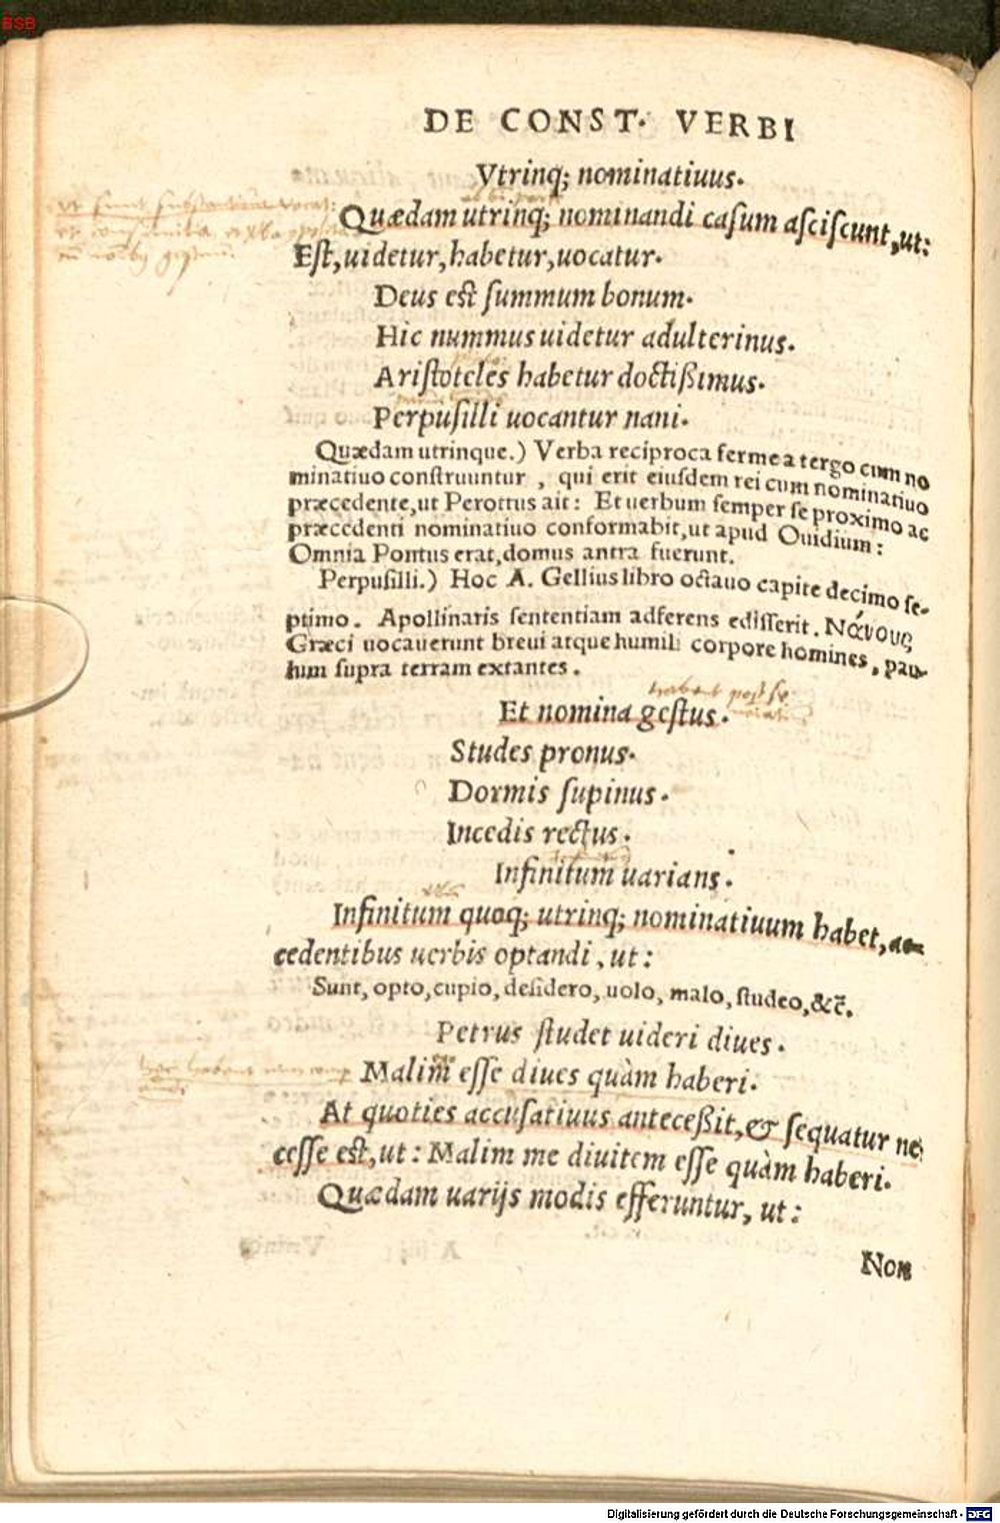 BSB
DE CONST. VERBI
Vtrinq; nominatiuus.
Quædam utrinq; nominandi caſum aſciſcunt, ut:
Eſt, uidetur, habetur, uocatur.
Deus eſt ſummum bonum.
Hic nummus uidetur adulterinus.
Ariſtoteles habetur doctißimus.
Perpuſilli uocantur nani.
Quædam utrinque.) Verba recíproca ferme a tergo cum no
minatiuo conſtruuntur, qui erit eiuſdem rei cum nominatiuo
præcedente, ut Perottus ait: Et uerbum ſemper ſe proximo ac
præcedenti nominatiuo conformabit, ut apud Ouidium:
Omnia Pontus erat, domus antra fuerunt.
Perpuſilli.) Hoc A. Gellius libro octauo capite decimo ſe-
ptimo. Apollinaris ſententiam adferens ediſſerit. Νάνους
Græci uocauerunt breui atque humili corpore homines, pau-
lum ſupra terram extantes.
trahunt post se
Et nomina geſtus.
Studes pronus.
Dormis ſupinus.
Incedis rectus.
Infinitum uarians.
Infinitum quoq; utrinq; nominatiuum habet, ac-
cedentibus uerbis optandi, ut:
Sunt, opto, cupio, deſidero, uolo, malo, ſtudeo, &c̄.
Petrus ſtudet uideri diues.
Malim eſſe diues quàm haberi.
At quoties accuſatiuus anteceßit, & ſequatur ne
ceſſe eſt, ut: Malim me diuitem eſſe quàm haberi.
Quædam uarijs modis efferuntur, ut:
Non
Digitalisierung gefördert durch die Deutsche Forschungsgemeinschaft - DFG